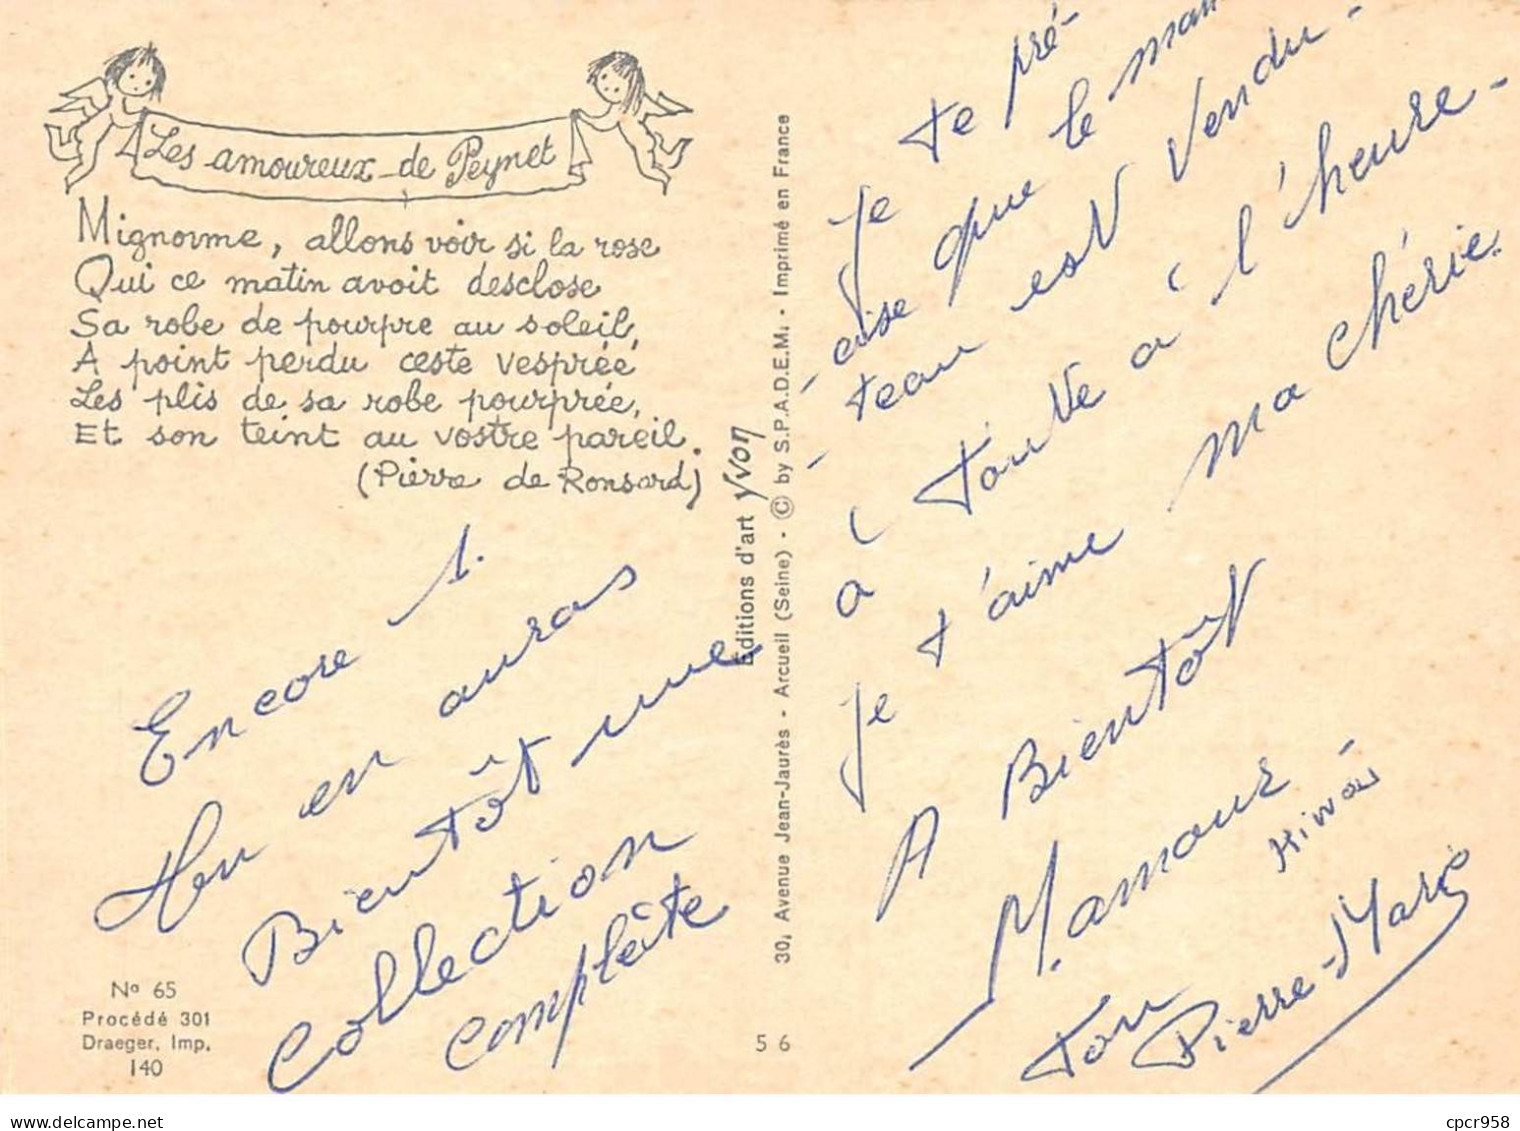 Les amoureux de Peynet
Mignonne, allons voir si la rose
Qui ce matin avoit desclose
Sa robe de pourpre au soleil,
A point perdu ceste vesprée
Les plis de sa robe pourprée,
Et son teint au vostre pareil.
(Pierre de Ronsard)
Encore 1.
tu en auras
Bientôt une
Collection
complète
Nº 65
Procédé 301
Draeger, Imp.
140
Editions d'art Yvon
30, Avenue Jean-Jaurès - Arcueil (Seine) - © by S.P.A.D.E.M. - Imprimé en France
56
Je te pré-
cise que le man-
teau est vendu-
à toute à l'heure-
Je t'aime ma chérie.
A Bientôt
Mamour
Ton Pierre-Marc
cpcr958